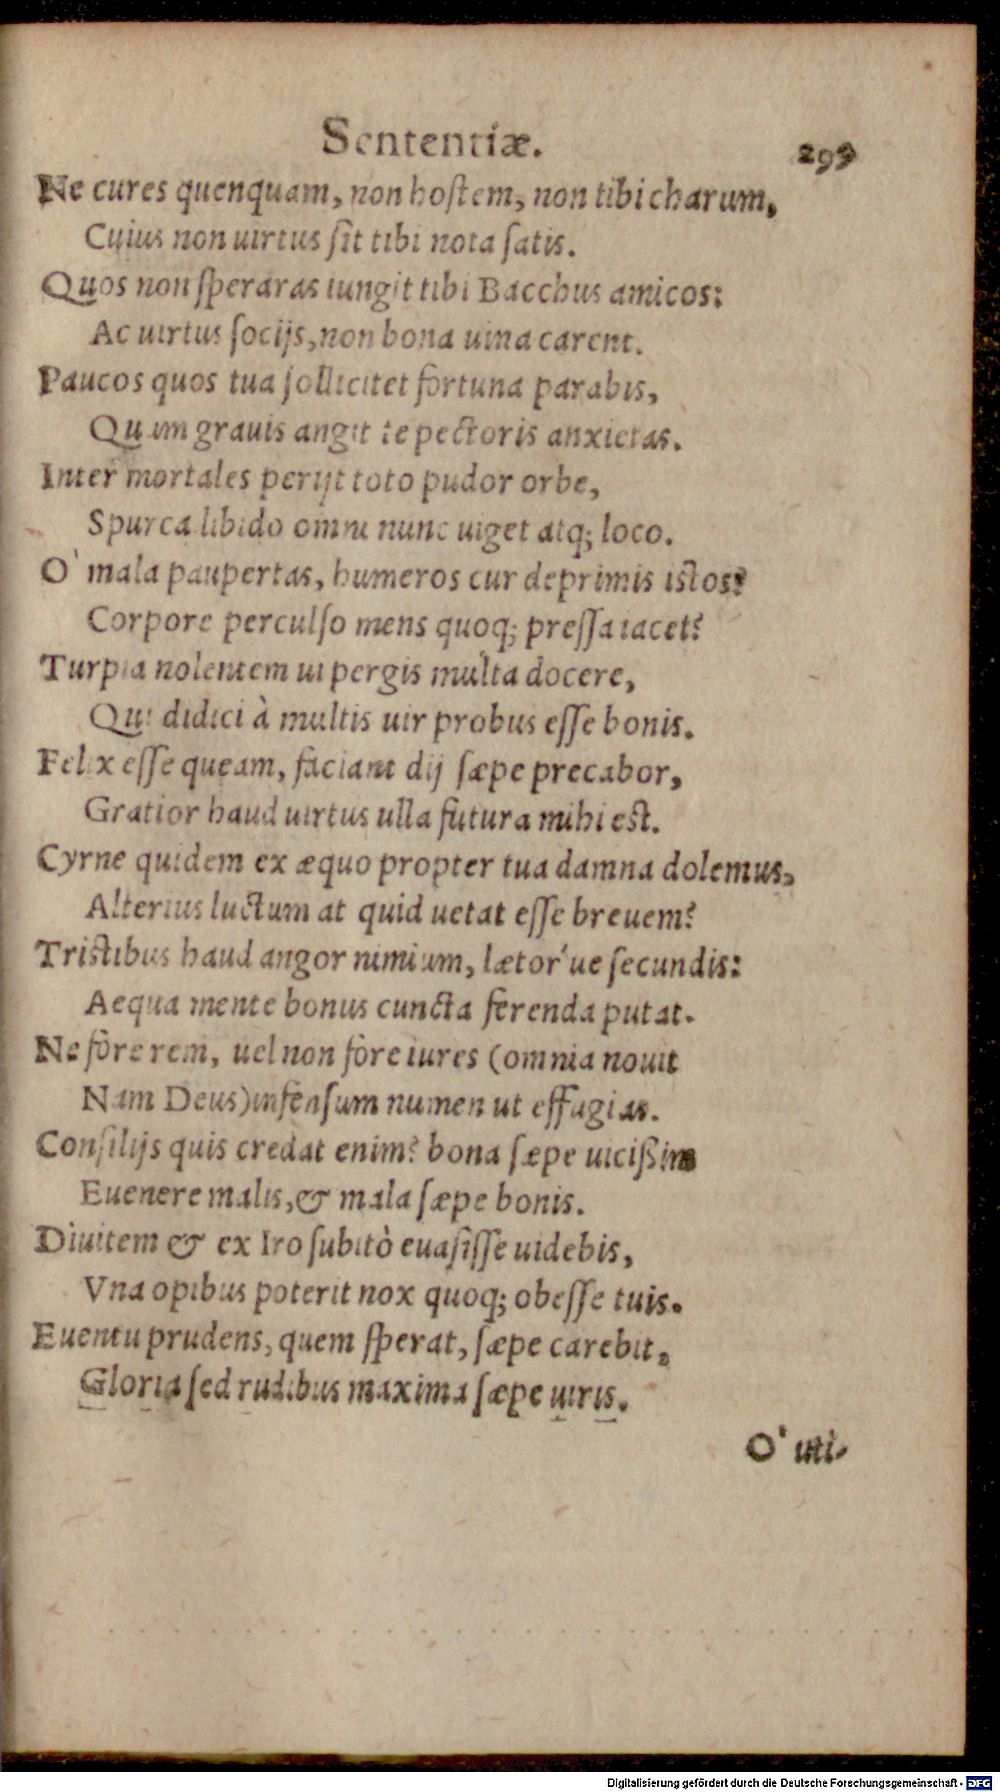 Sententiæ. 299
Ne cures quenquam, non hoſtem, non tibi charum,
Cuius non uirtus ſit tibi nota ſatis.
Quos non ſperaras iungit tibi Bacchus amicos:
Ac uirtus ſocijs, non bona uina carent.
Paucos quos tua ſollicitet fortuna parabis,
Quum grauis angit te pectoris anxietas.
Inter mortales perijt toto pudor orbe,
Spurca libido omni nunc uiget atq; loco.
O' mala paupertas, humeros cur deprimis istos?
Corpore perculſo mens quoq; preſſa iacet?
Turpia nolentem ui pergis multa docere,
Qui didici à multis uir probus eſſe bonis.
Felix eſſe queam, faciant dij ſæpe precabor,
Gratior haud uirtus ulla futura mihi est.
Cyrne quidem ex æquo propter tua damna dolemus,
Alterius luctum at quid uetat eſſe breuem?
Tristibus haud angor nimium, lætor'ue ſecundis:
Aequa mente bonus cuncta ferenda putat.
Ne fore rem, uel non fore iures (omnia nouit
Nam Deus) infenſum numen ut effugias.
Conſilijs quis credat enim? bona ſæpe uicißim
Euenere malis, & mala ſæpe bonis.
Diuitem & ex Iro ſubitò euaſiſſe uidebis,
Vna opibus poterit nox quoq; obeſſe tuis.
Euentu prudens, quem ſperat, ſæpe carebit,
Gloria ſed rudibus maxima ſæpe uiris.
O' uti-
Digitalisierung gefördert durch die Deutsche Forschungsgemeinschaft - DFG